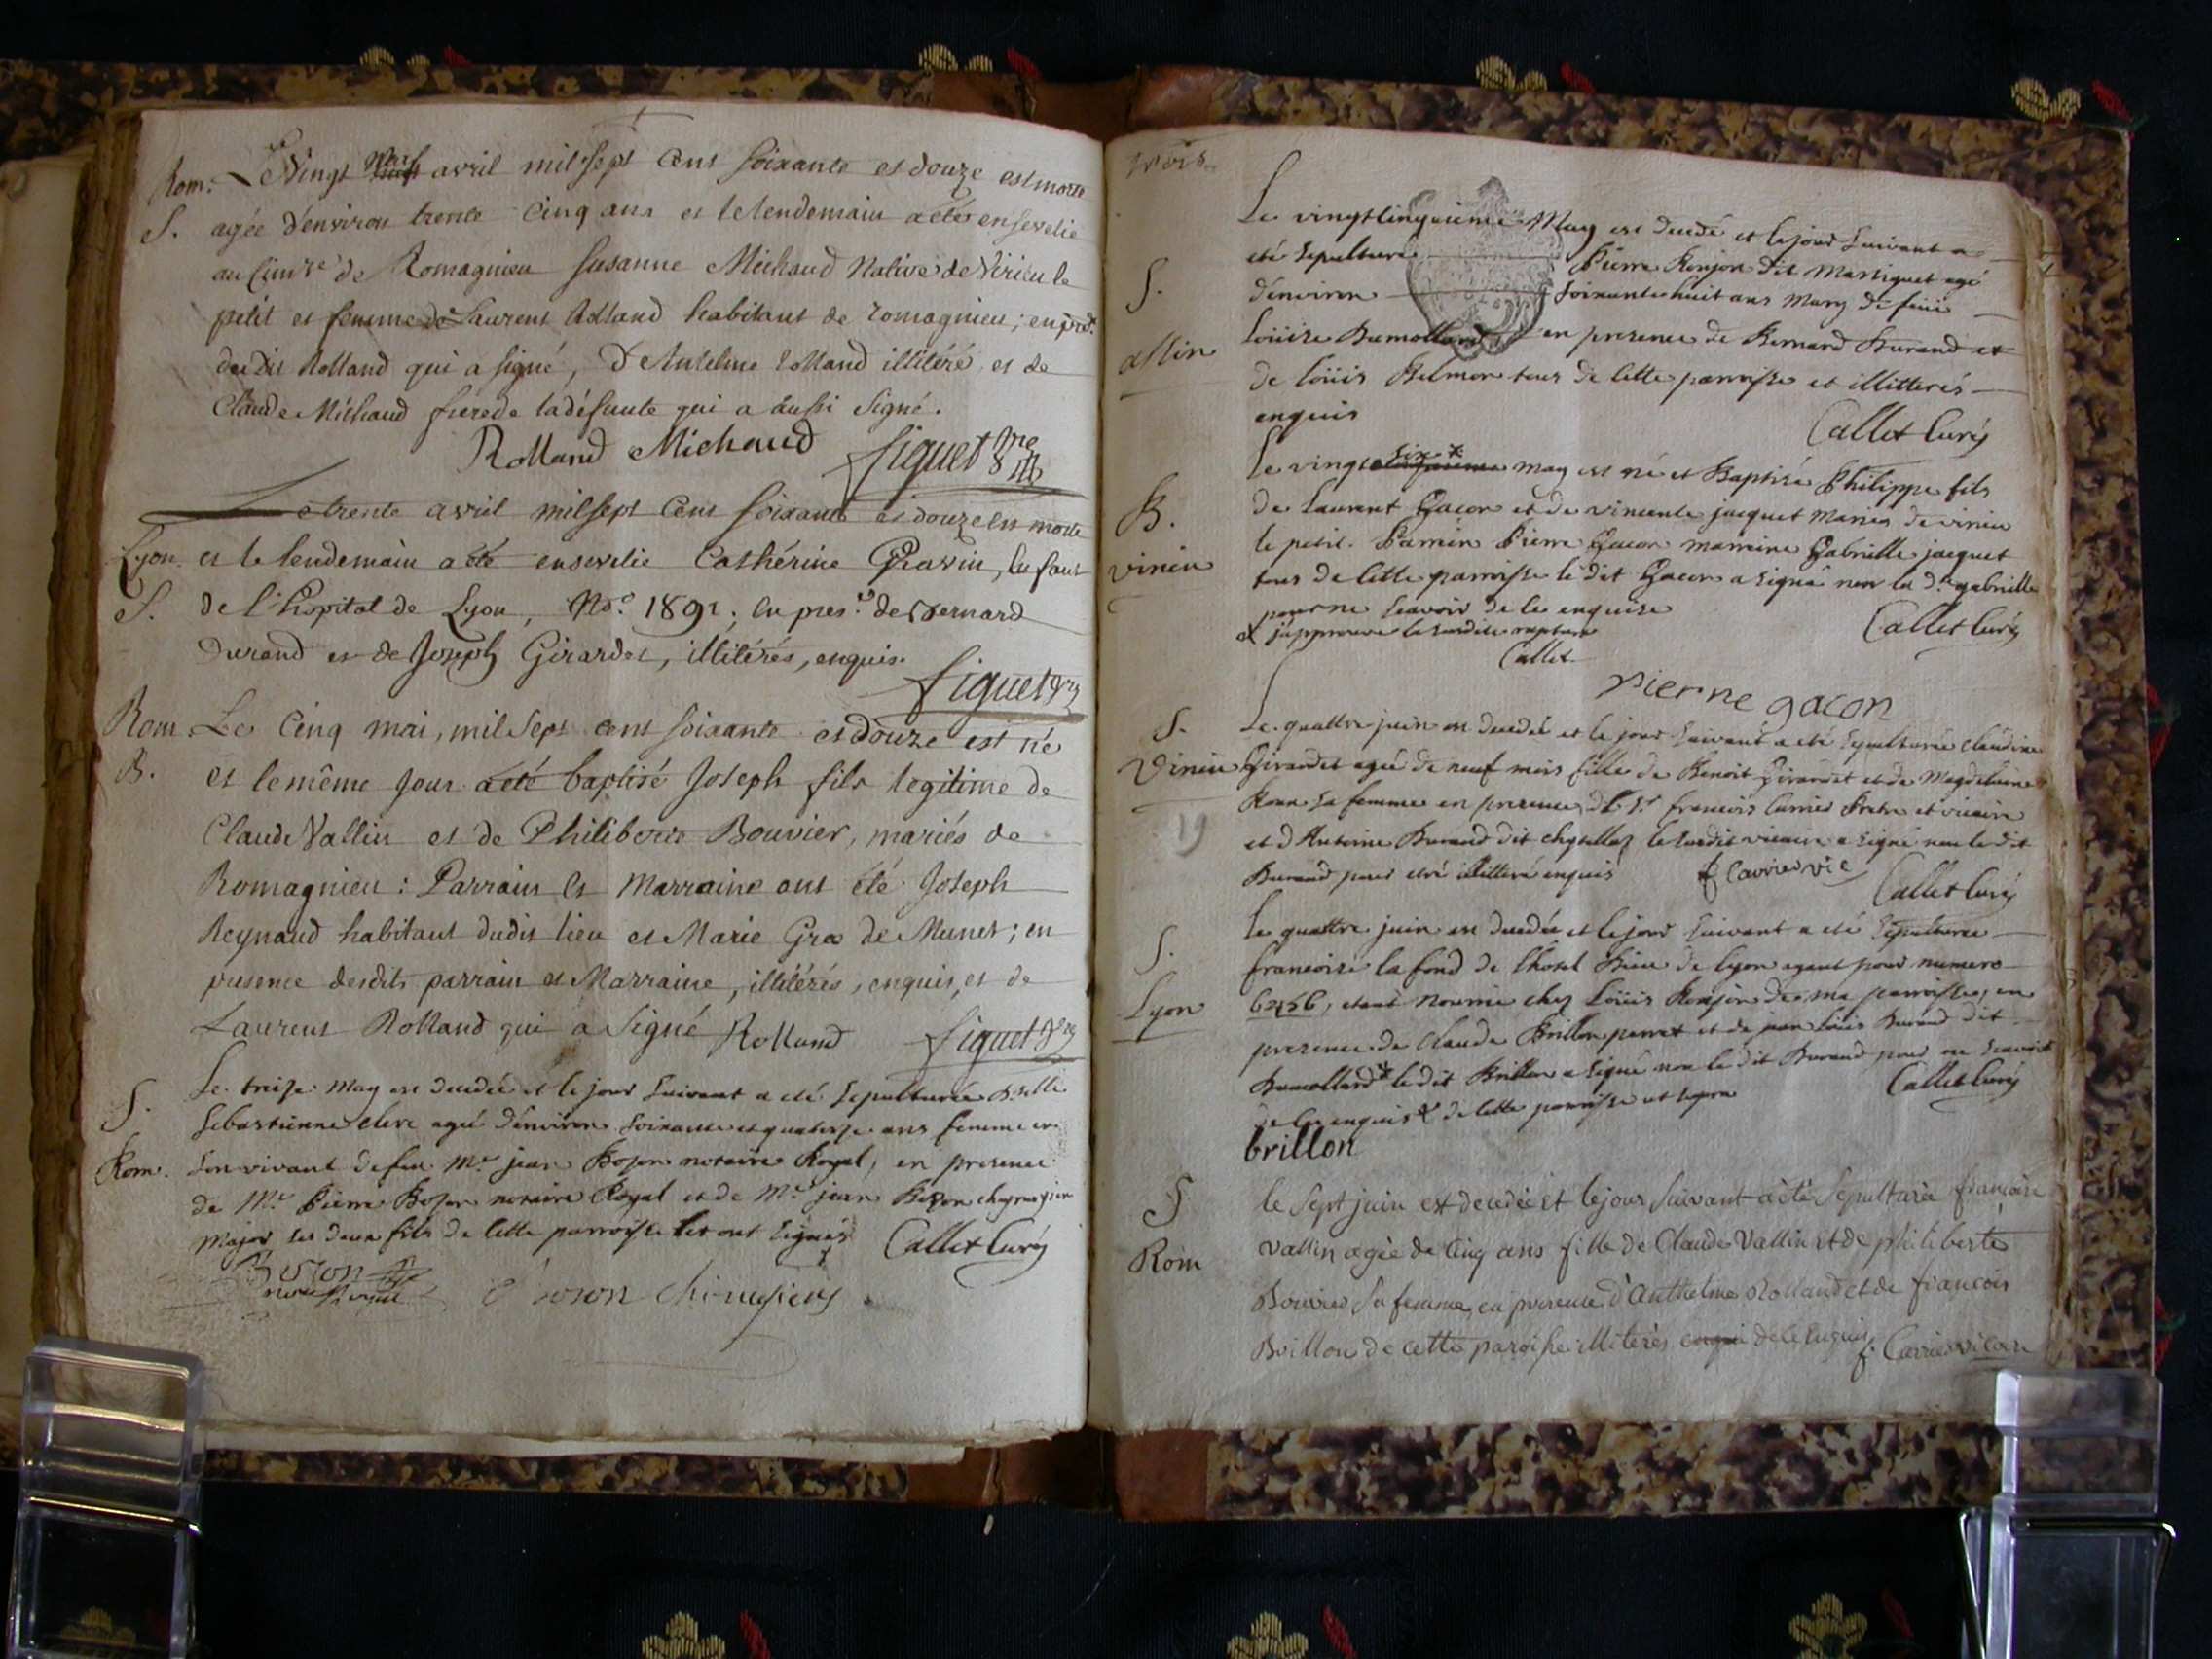 Rom. Le Vingt Neuf avril mil sept Cent soixante et douze est morte
S. agée d'environ trente Cinq ans et le lendemain a été ensevelie
au Cimre de Romagnieu Susanne Michaud Native de Virieu le
petit et femme de Laurent Rolland habitant de romagnieu; en prese
du dit Rolland qui a signé, D'Antelme Rolland illitéré et de
Claude Michaud frere de la défunte qui a aussi signé.
Rolland Michaud Figuet
Le trente avril mil sept Cent soixante et douze est morte
Lyon. et le lendemain a été ensevelie Cathérine Pravin, Enfant
S. de l'hopital de Lyon, No. 1891; En pres.e de Bernard
Durand et de Joseph Girardet, illitérés, enquis.
Figuet
Rom Le Cinq mai, mil Sept cent soixante et douze est né
B. et le même Jour a été baptisé Joseph fils legitime de
Claude Vallin et de Philiberte Bouvier, mariés de
Romagnieu: Parrain et Marraine ont été Joseph
Reynaud habitant dudit lieu et Marie Gros de Munet; en
presence desdits parrain et Marraine, illitérés, enquis, et de
Laurent Rolland qui a Signé Rolland Figuet
Le treize May est decedée et le jour suivant a eté sepulturée Dlle
S. Sebastienne clerc agée d'environ soixante et quatorze ans femme en
Rom. son vivant de feu Me jean Bozon notaire Royal, en presence
de Me Pierre Bozon notaire Royal et de Me jean Bozon chyrurgien
Major ses deux fils de cette parroisse et ont signés
Callet Curé
Bozon
not Royal Bozon chirurgien
Le vingt cinquieme May est decedé et le jour suivant a
eté sepulturé Pierre Ronjon dit Martiguet agé
S. d'environ soixante huit ans Mary de feüe
allin Loüise Dumollard en presence de Bernard Durand et
de loüis Belmon tous de cette parroisse et illitterés
enquis
Callet Curé
Le vingt six * may est né et Baptisé Philippe fils
B. de Laurent Gacon et de vincente jacquet Mariés de virieu
virieu le petit. Parrein Pierre Gacon marreine Gabrielle jacquet
tous de cette parroisse le dit Gacon a signé non la de gabrielle
pour ne scavoir de ce enquise
* j'approuve la susdite rapture Callet Curé
Callet
pierre gacon
S. Le quattre juin est decedée et le jour suivant a eté sepulturée claudine
Virieu Girardet agée de neuf mois fille de Benoit Girardet et de Magdeleine
Roux sa femme en presence de Sr françois Carrier Prêtre et vicaire
19 et d'Antoine Durand dit chatellaz le susdit vicaire a signé non le dit
Durand pour etre illitteré enquis f Carrier vic
Callet Curé
Le quattre juin est decedée et le jour suivant a eté sepulturée
S. francoise la fond de l'hotel Dieu de lyon ayant pour numero
Lyon 6256, etant Nourrie chez Loüis Ronjon de ma parroisse, en
presence de Claude Brillon perret et de jean loüis Durand dit
Dumollard * le dit Brillon a signé non le dit Durand pour ne scavoir
de ce enquis * de cette parroisse et Callet Curé
brillon
S le sept juin est decedée et le jour suivant a été sepulturée françoise
Rom vallin agée de cinq ans fille de Claude Vallin et de philiberte
Bouvier sa femme, en presence d'Anthelme Rolland et de françois
Brillon de cette paroisse illiterés de ce enquis f. Carrier vicaire